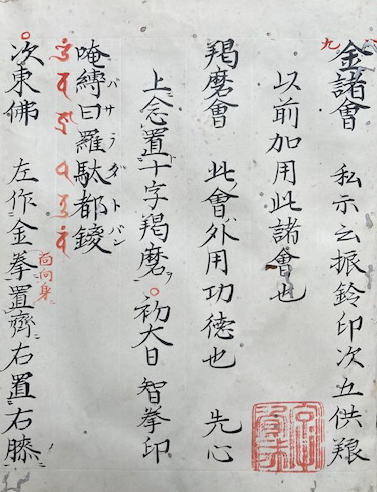 九
金諸會 私示云振鈴印次五供養
以前加用此諸會也
羯磨會 此會ハ外用功徳也 先心
上念置十字羯磨ヲ 初大日 智拳印
唵縛曰羅駄都鑁
バサラダトバン
次東佛 左作金拳置齊右置右膝
面向身